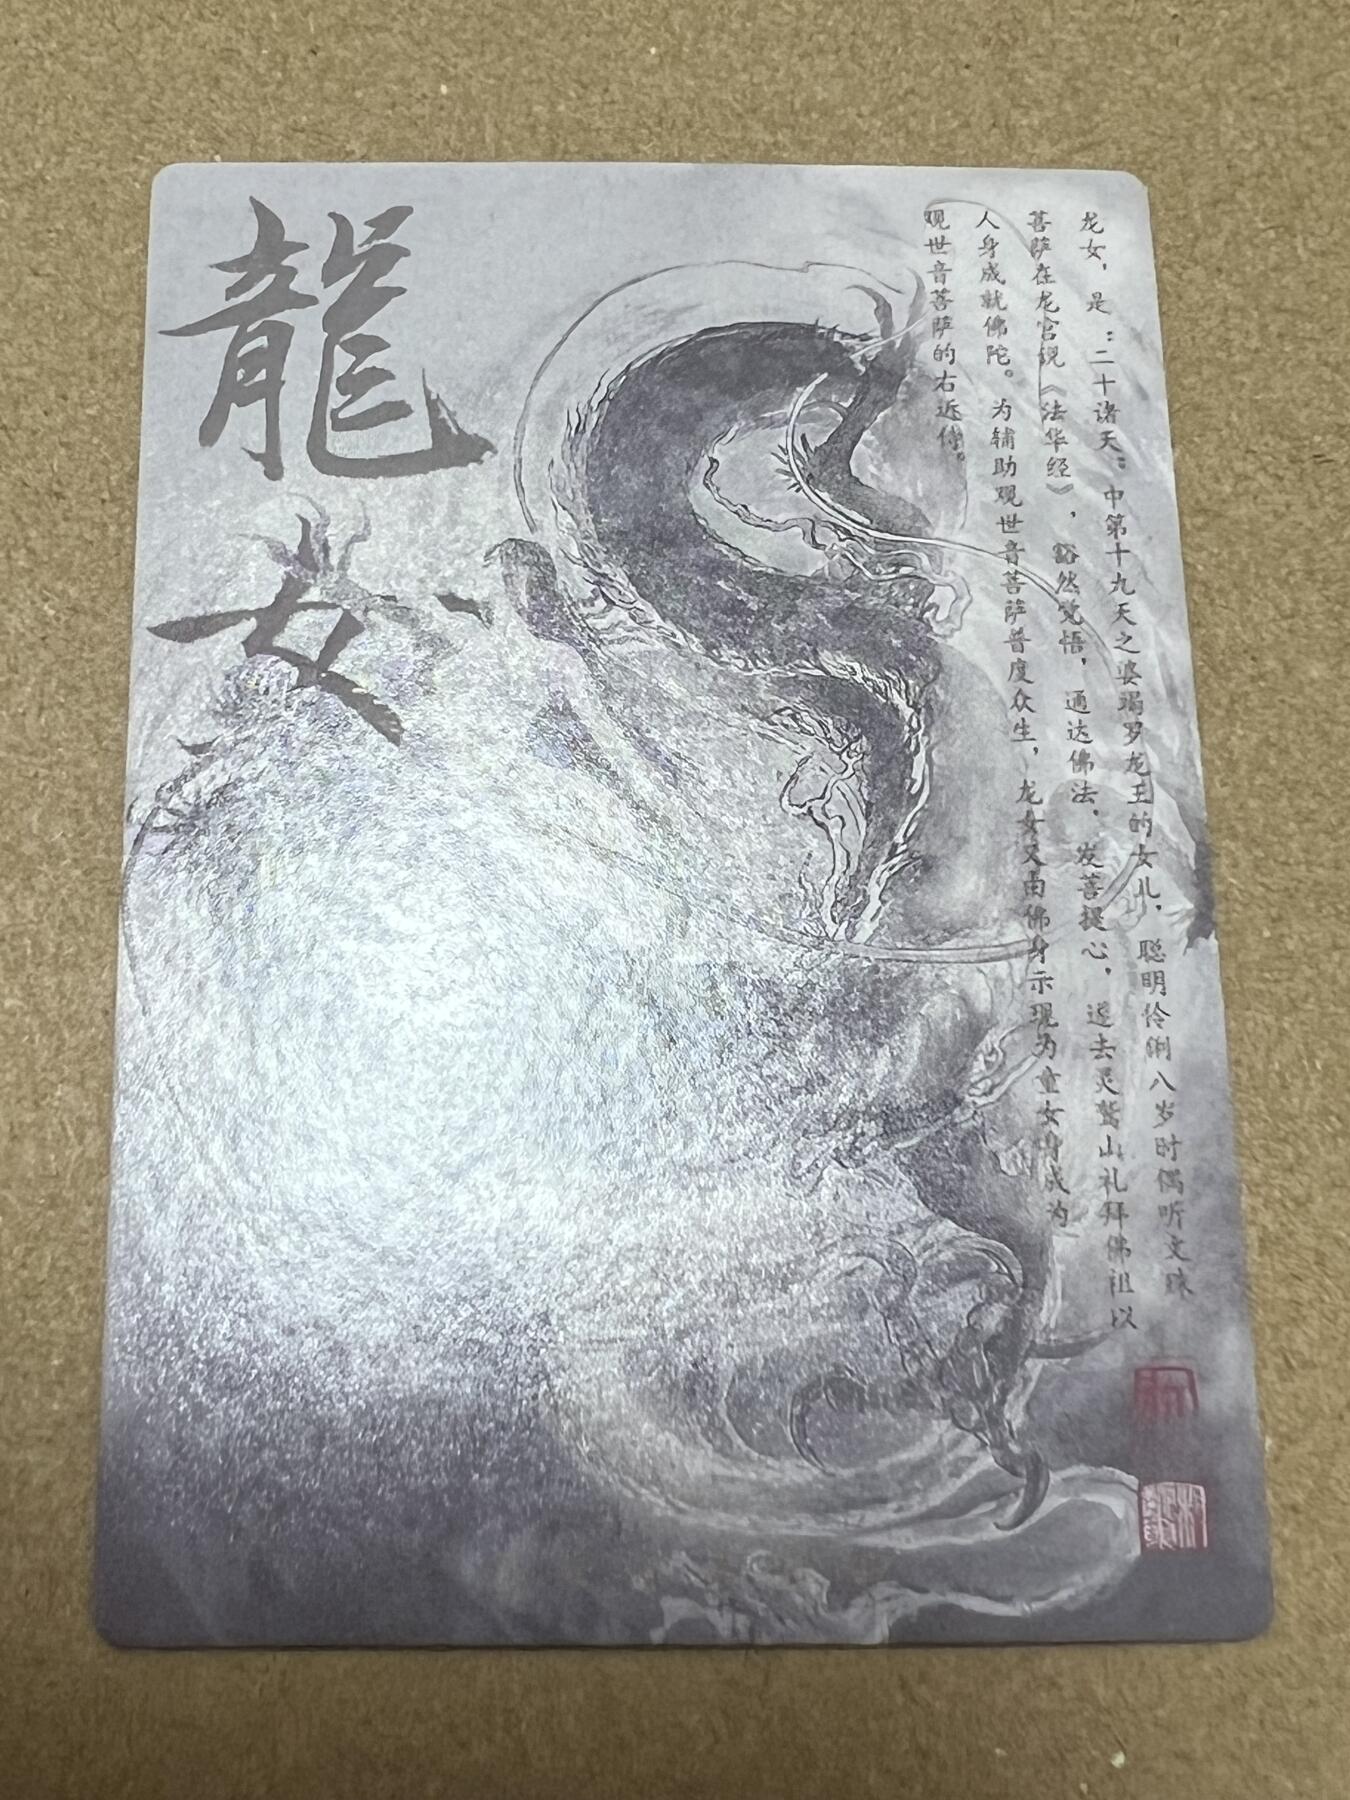 龍女
龙女，是：二十诸天：中第十九天之婆竭罗龙王的女儿，聪明伶俐八岁时偶听文殊
菩萨在龙宫说《法华经》，豁然觉悟，通达佛法，发菩提心，遂去灵鹫山礼拜佛祖以
人身成就佛陀。为辅助观世音菩萨普度众生，龙女又由佛身示现为童女身成为
观世音菩萨的右近侍。